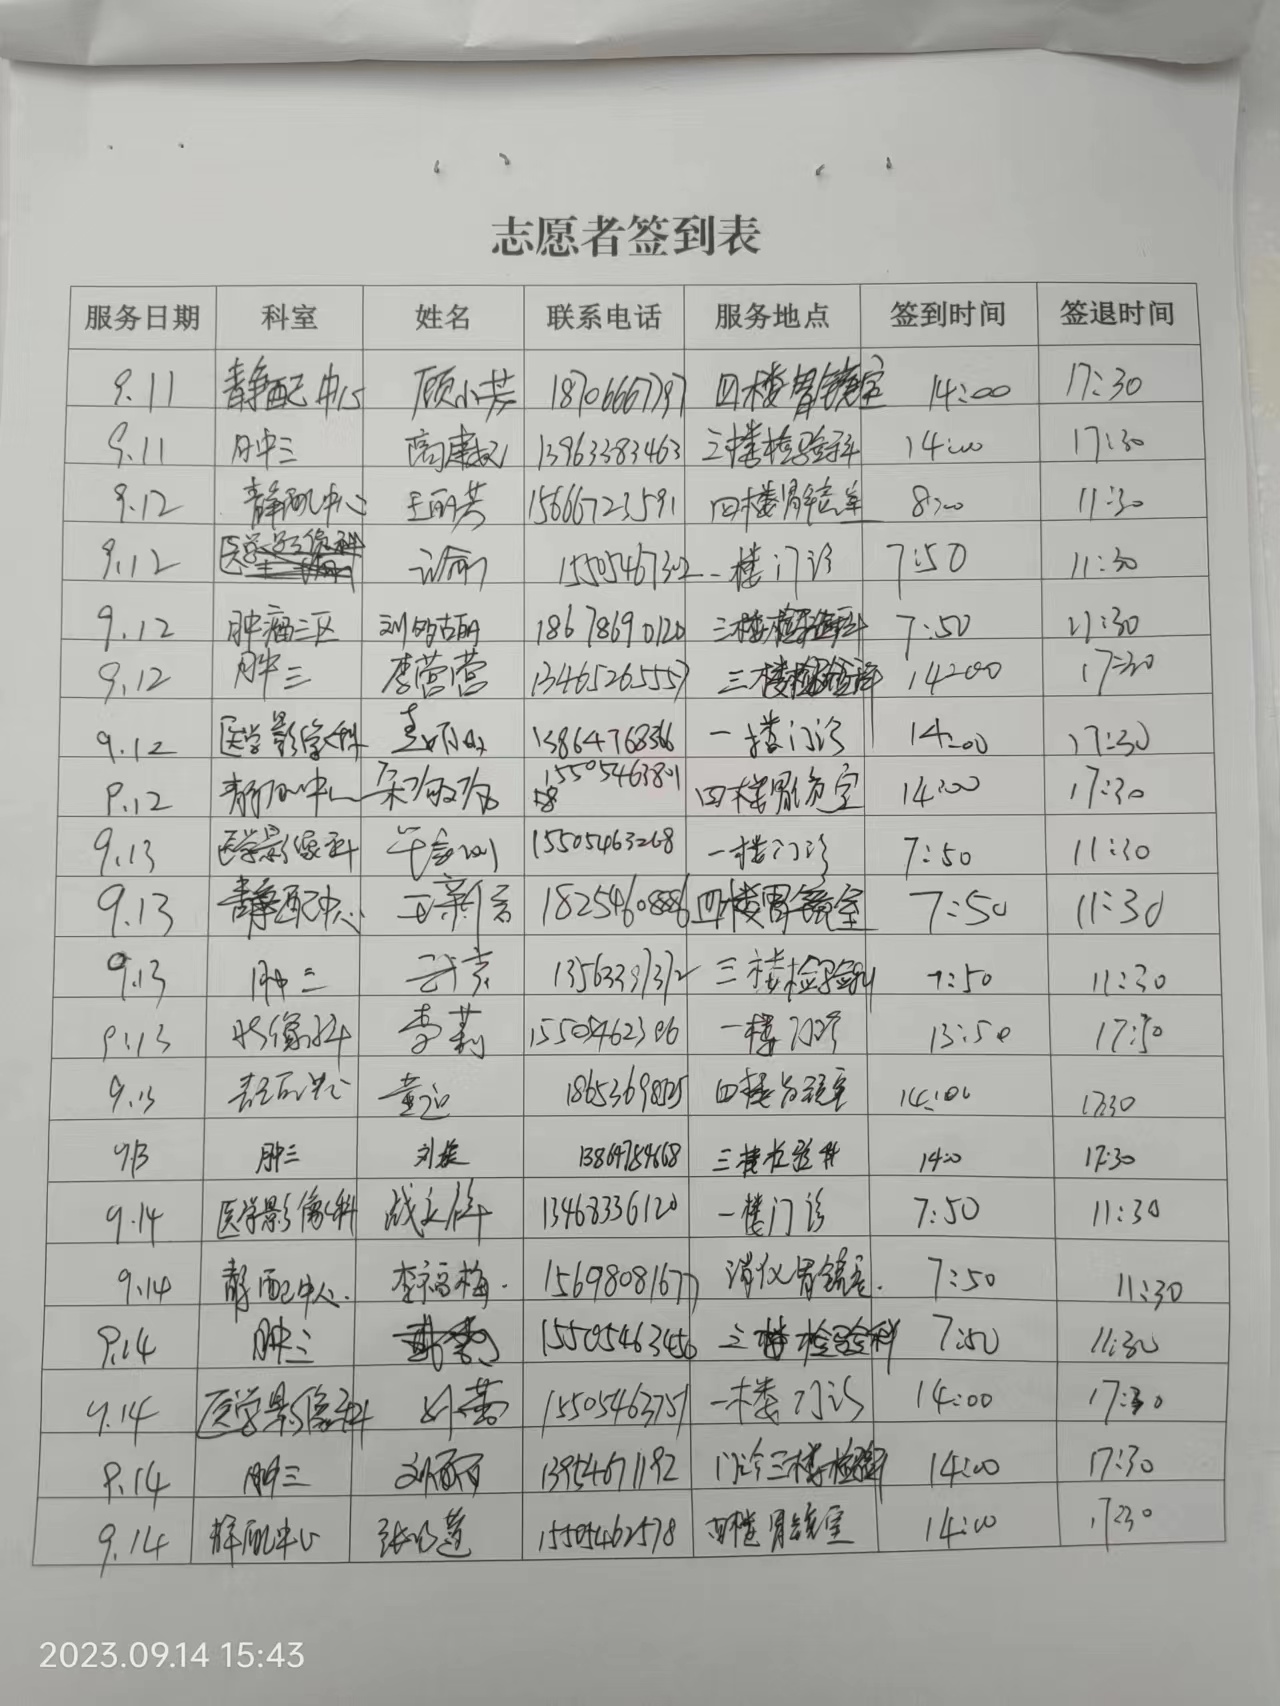 志愿者签到表
服务日期 科室 姓名 联系电话 服务地点 签到时间 签退时间
9.11 静配中心 顾小芳 18706667797 四楼胃镜室 14:00 17:30
9.11 肿三 高建 13963383463 三楼检验科 14:00 17:30
9.12 静配中心 王丽英 15666723591 四楼胃镜室 8:00 11:30
9.12 医学影像科 15505467302 一楼门诊 7:50 11:30
9.12 肿瘤三区 刘 18678690120 三楼检验科 7:50 11:30
9.12 肿三 李营营 13465265557 三楼检验科 14:00 17:30
9.12 医学影像科 13864768366 一楼门诊 14:00 17:30
9.12 静配中心 15505463801 四楼胃镜室 14:00 17:30
58
9.13 医学影像科 15505463268 一楼门诊 7:50 11:30
9.13 静配中心 王新 18254608886 四楼胃镜室 7:50 11:30
9.13 肿三 13563397372 三楼检验科 7:50 11:30
9.13 影像科 李莉 15505462306 一楼门诊 13:50 17:50
9.13 静配中心 黄 18653698525 四楼胃镜室 14:00 17:30
9.13 肿三 刘 13864754668 三楼检验科 14:0 17:30
9.14 医学影像科 战 13468336120 一楼门诊 7:50 11:30
9.14 静配中心. 李福梅. 15698081677 消化胃镜室. 7:50 11:30
9.14 肿三 15505463456 三楼检验科 7:50 11:30
9.14 医学影像科 15505463757 一楼门诊 14:00 17:30
9.14 肿三 刘丽丽 13954671192 门诊三楼检验科 14:00 17:30
9.14 静配中心 张 莲 15505462578 四楼胃镜室 14:00 17:30
2023.09.14 15:43